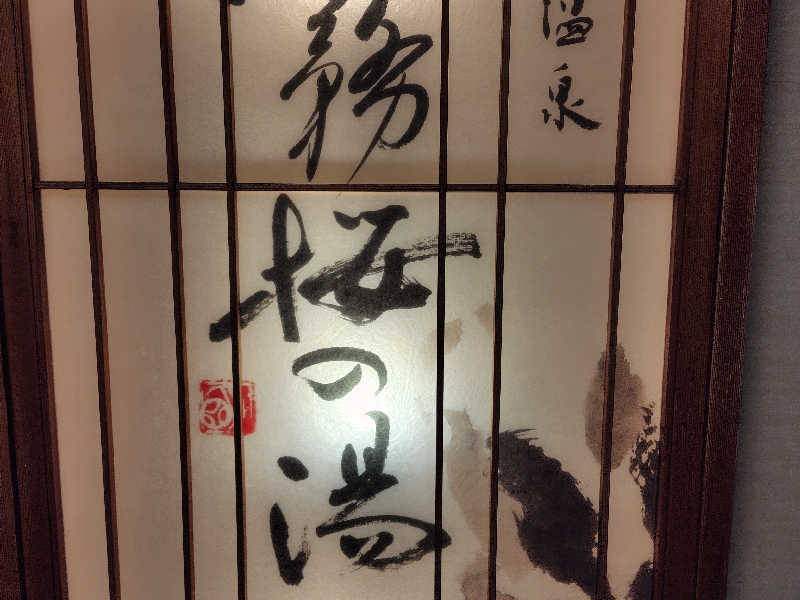 温泉
務
桜の湯